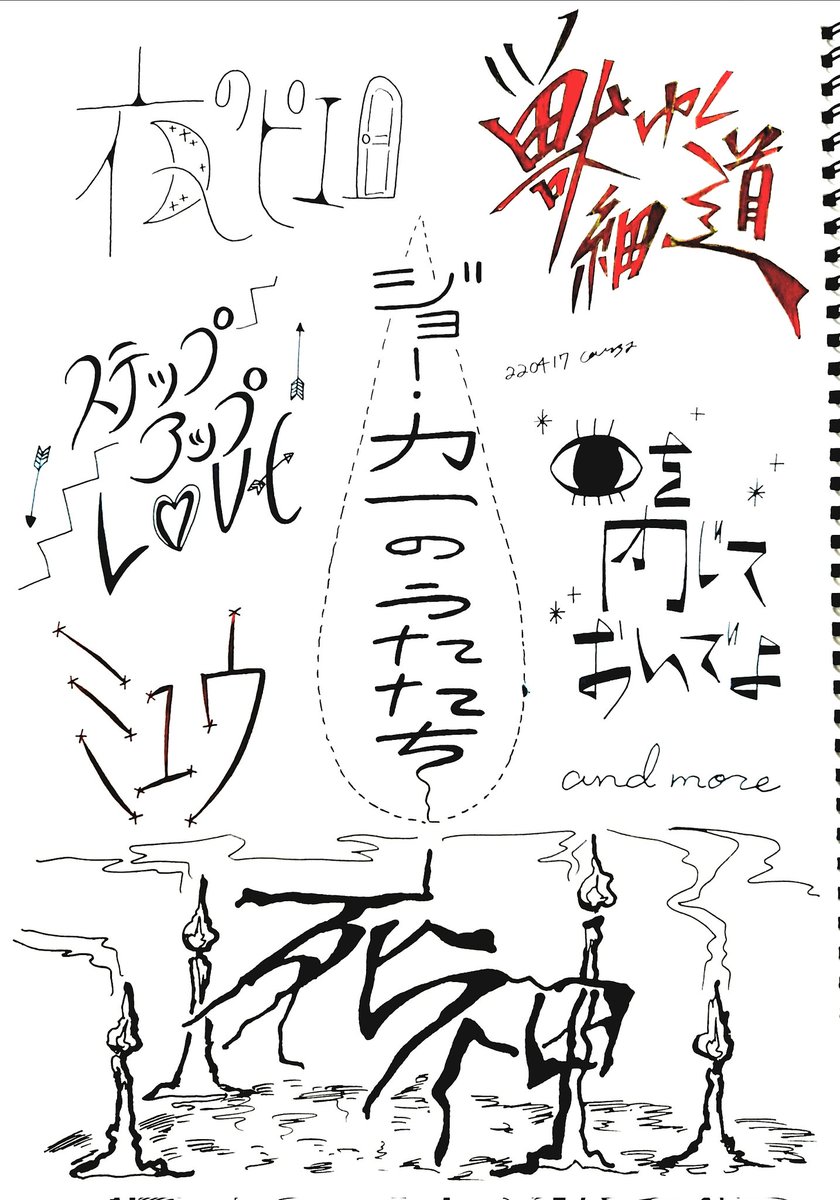 夜のピエロ
獣ゆく
細道
ジョーカーのうた
たち
220417
ステップ
アップ
LOVE
目を
閉じて
おいでよ
ミュウ
and more
死神